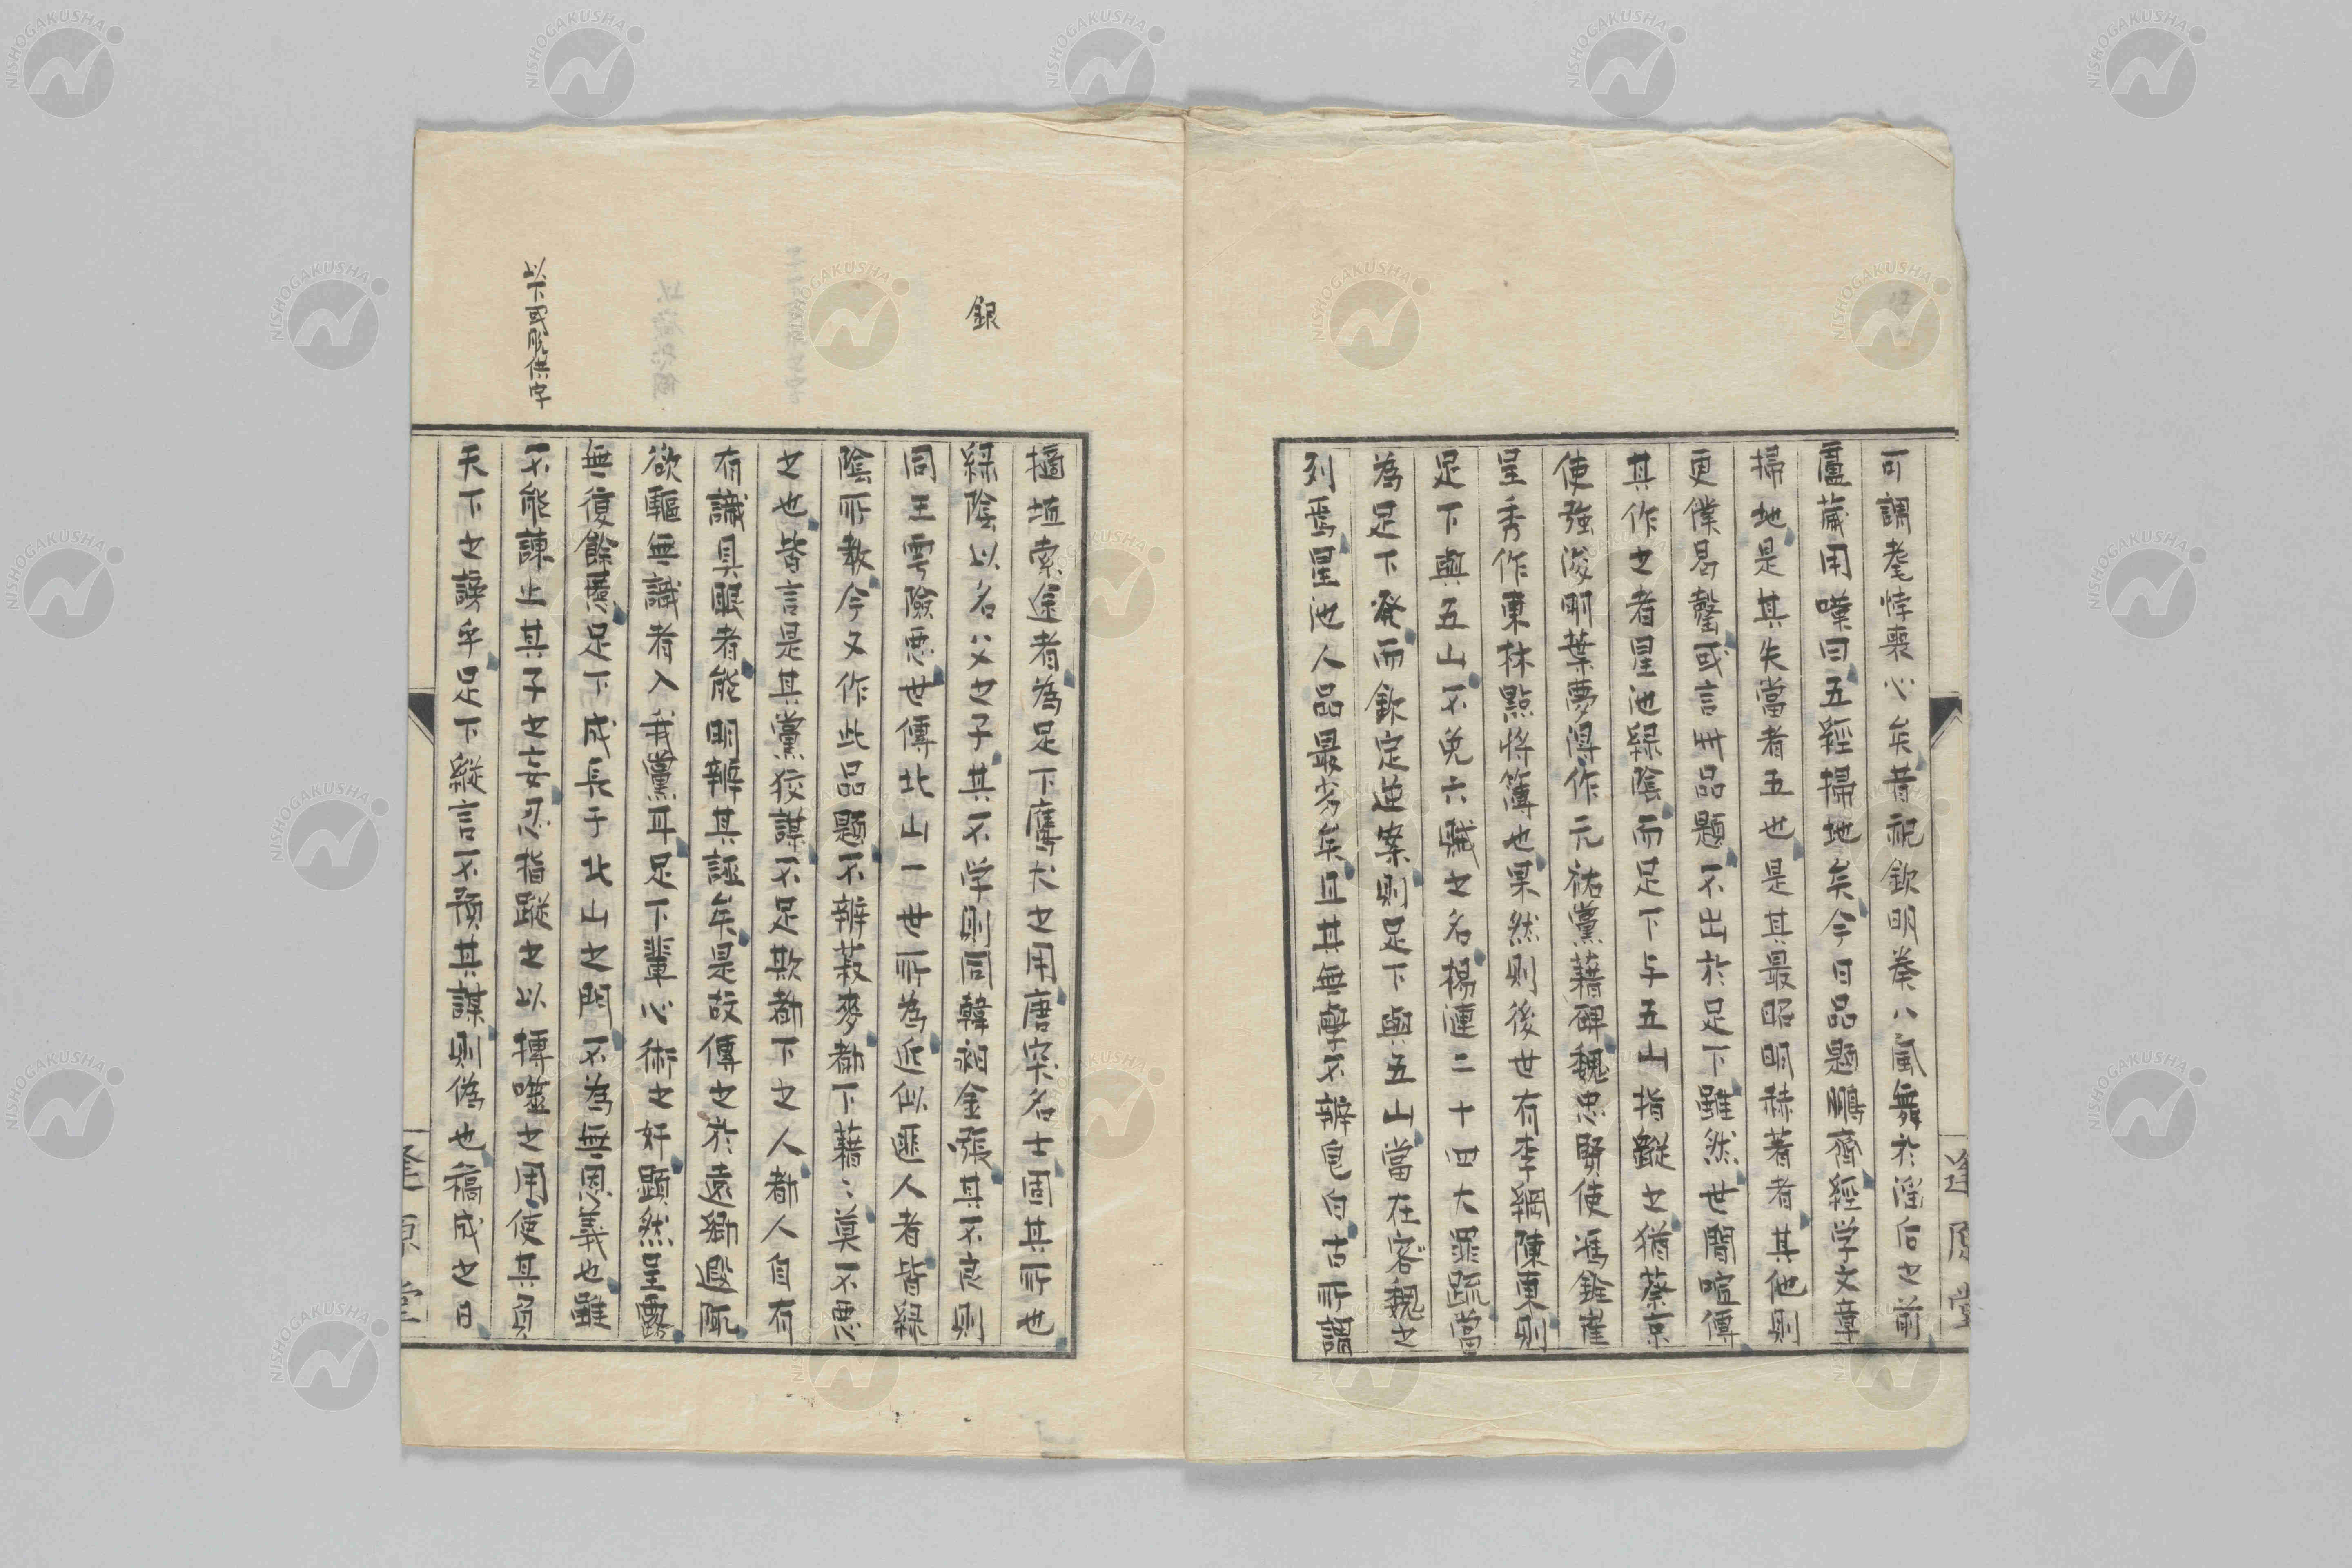 可謂耄悖喪心矣昔祀欽明奏八風舞於淫后之前
盧葳用嘆曰五經掃地矣今日品題鵬齋經学文章
掃地是其失當者五也是其最昭明赫著者其他則
更僕曷罄或言此品題不出於足下雖然世間喧傳
其作之者星池緑陰而足下与五山指蹤之猶蔡京
使強浚明葉夢得作元祐黨藉碑魏忠賢使馮銓崔
呈秀作東林點將簿也果然則後世有李綱陳東則
足下與五山不免六賊之名楊漣二十四大罪疏當
為足下発而欽定逆案則足下與五山當在客魏之
列焉星池人品最劣矣且其無學不辨皀白古所謂
擿埴索途者為足下鷹犬之用唐宋名士固其所也
緑陰以名父之子其不学則同韓昶金張其不良則
同王雩險悪世傳北山一世所為近似匪人者皆緑
陰所教今又作此品題不辨菽麥都下藉〻莫不悪
之也皆言是其黨狡謀不足欺都下之人都人自有
有識具眼者能明辨其誣矣是故傳之於遠郷遐陬
欲驅無識者入我黨耳足下輩心術之奸顕然呈露
無復餘蘊足下成長于北山之門不為無恩義也雖
不能諫止其子之妄忍指蹤之以摶噬之用使其負
天下之謗乎足下縱言不預其謀則偽也稿成之日
銀
以下或脱供字
逢原堂
逢原堂